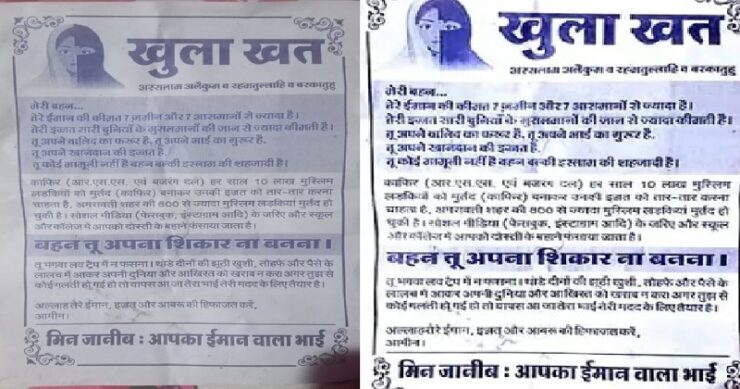 खुला खत
अस्सलाम अलैकुम व रहमतुल्लाहि व बरकातुहु
मेरी बहन...
तेरे ईमान की कीमत 7 ज़मीन और 7 आसमानों से ज्यादा है।
तेरी इज्जत सारी दुनियाँ के मुसलमानों की जान से ज्यादा कीमती है।
तू अपने वालिद का फख्र है, तू अपने भाई का गुरूर है.
तू अपने खानदान की इज्जत है.
तू कोई मामूली नहीं है बहन बल्की इस्लाम की शहजादी है।
काफिर (आर.एस.एस. एवं बजरंग दल) हर साल 10 लाख मुस्लिम
लडकियों को मुर्तद (काफिर) बनाकर उनकी इज्जत को तार-तार करना
चाहता है, अमरावती शहर की 800 से ज्यादा मुस्लिम लडकियां मुर्तद हो
चुकी है। सोशल मीडिया (फेसबुक, इंस्टाग्राम आदि) के जरिए और स्कूल
और कॉलेज में आपको दोस्ती के बहाने फंसाया जाता है।
बहन तू अपना शिकार ना बनना।
तू भगवा लव ट्रैप में न फसना। थोडे दीनों की झूठी खुशी, तोहफे और पैसे के
लालच में आकर अपनी दुनिया और आखिरत को खराब न कर। अगर तुझ से
कोई गलती हो गई हो तो वापस आ जा तेरा भाई तेरी मदद के लिए तैयार है।
अल्लाह तेरे ईमान, इज्जत और आबरू की हिफाजत करें,
आमीन।
मिन जानीब : आपका ईमान वाला भाई
खुला खत
अस्सलाम अलैकुम व रहमतुल्लाहि व बरकातुहु
मेरी बहन...
तेरे ईमान की कीमत 7 ज़मीन और 7 आसमानों से ज्यादा है।
तेरी इज्जत सारी दुनियाँ के मुसलमानों की जान से ज्यादा कीमती है।
तू अपने वालिद का फख्र है, तू अपने भाई का गुरूर है.
तू अपने खानदान की इज्जत है.
तू कोई मामूली नहीं है बहन बल्की इस्लाम की शहजादी है।
काफिर (आर.एस.एस. एवं बजरंग दल) हर साल 10 लाख मुस्लिम
लडकियों को मुर्तद (काफिर) बनाकर उनकी इज्जत को तार-तार करना
चाहता है, अमरावती शहर की 800 से ज्यादा मुस्लिम लडकियां मुर्तद हो
चुकी है। सोशल मीडिया (फेसबुक, इंस्टाग्राम आदि) के जरिए और स्कूल
और कॉलेज में आपको दोस्ती के बहाने फंसाया जाता है।
बहन तू अपना शिकार ना बनना।
तू भगवा लव ट्रैप में न फसना। थोडे दीनों की झूठी खुशी, तोहफे और पैसे के
लालच में आकर अपनी दुनिया और आखिरत को खराब न कर। अगर तुझ से
कोई गलती हो गई हो तो वापस आ जा तेरा भाई तेरी मदद के लिए तैयार है।
अल्लाह तेरे ईमान, इज्जत और आबरू की हिफाजत करें,
आमीन।
मिन जानीब : आपका ईमान वाला भाई